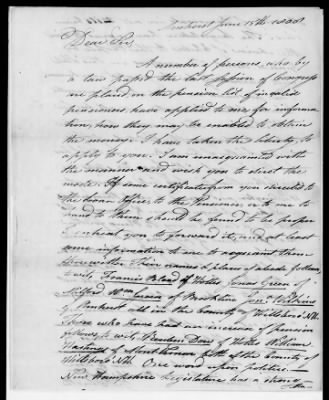 Amherst June 15th 1808
Dear Sir
A number of persons, who by
a law passed the last session of Congress
are placed on the pension list of invalid
pensioners, have applied to me for informa
tion, how they may be enabled to obtain
the money. I have taken the liberty, to
apply to you. I am unacquainted with
the manner and wish you to direct the
mode. If some certificate from you directed to
the loan Officer to the Pensioners, or to me to
hand to them should be found to be proper
I entreat you to forward it, and at least
some information to me to acquaint them
Their names & places of abode follow,
to wit, Francis Blood of Hollis Jonas Green of
Milford Wm of Brookline Wilkins
of Amherst all in the County of Hillsboro NH.
Those who have had an increase of pension
follow, to wit, Reuben Dow of Hollis William
Hastings of both of the County of
Hillsboro NH. One word upon politics—
New Hampshire Legislature has a strong